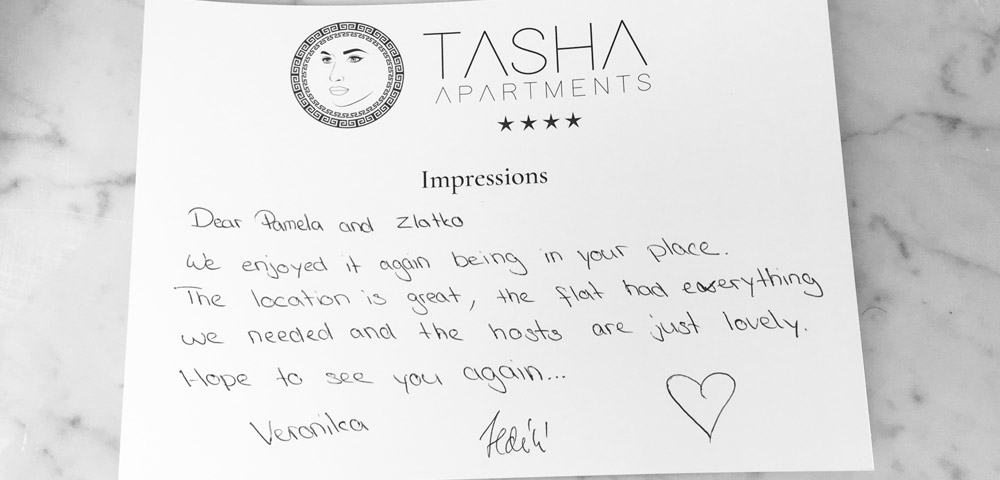 TASHA
APARTMENTS
Impressions
Dear Pamela and Zlatko
We enjoyed it again being in your place.
The location is great, the flat had everything
we needed and the hosts are just lovely.
Hope to see you again...
Veronika